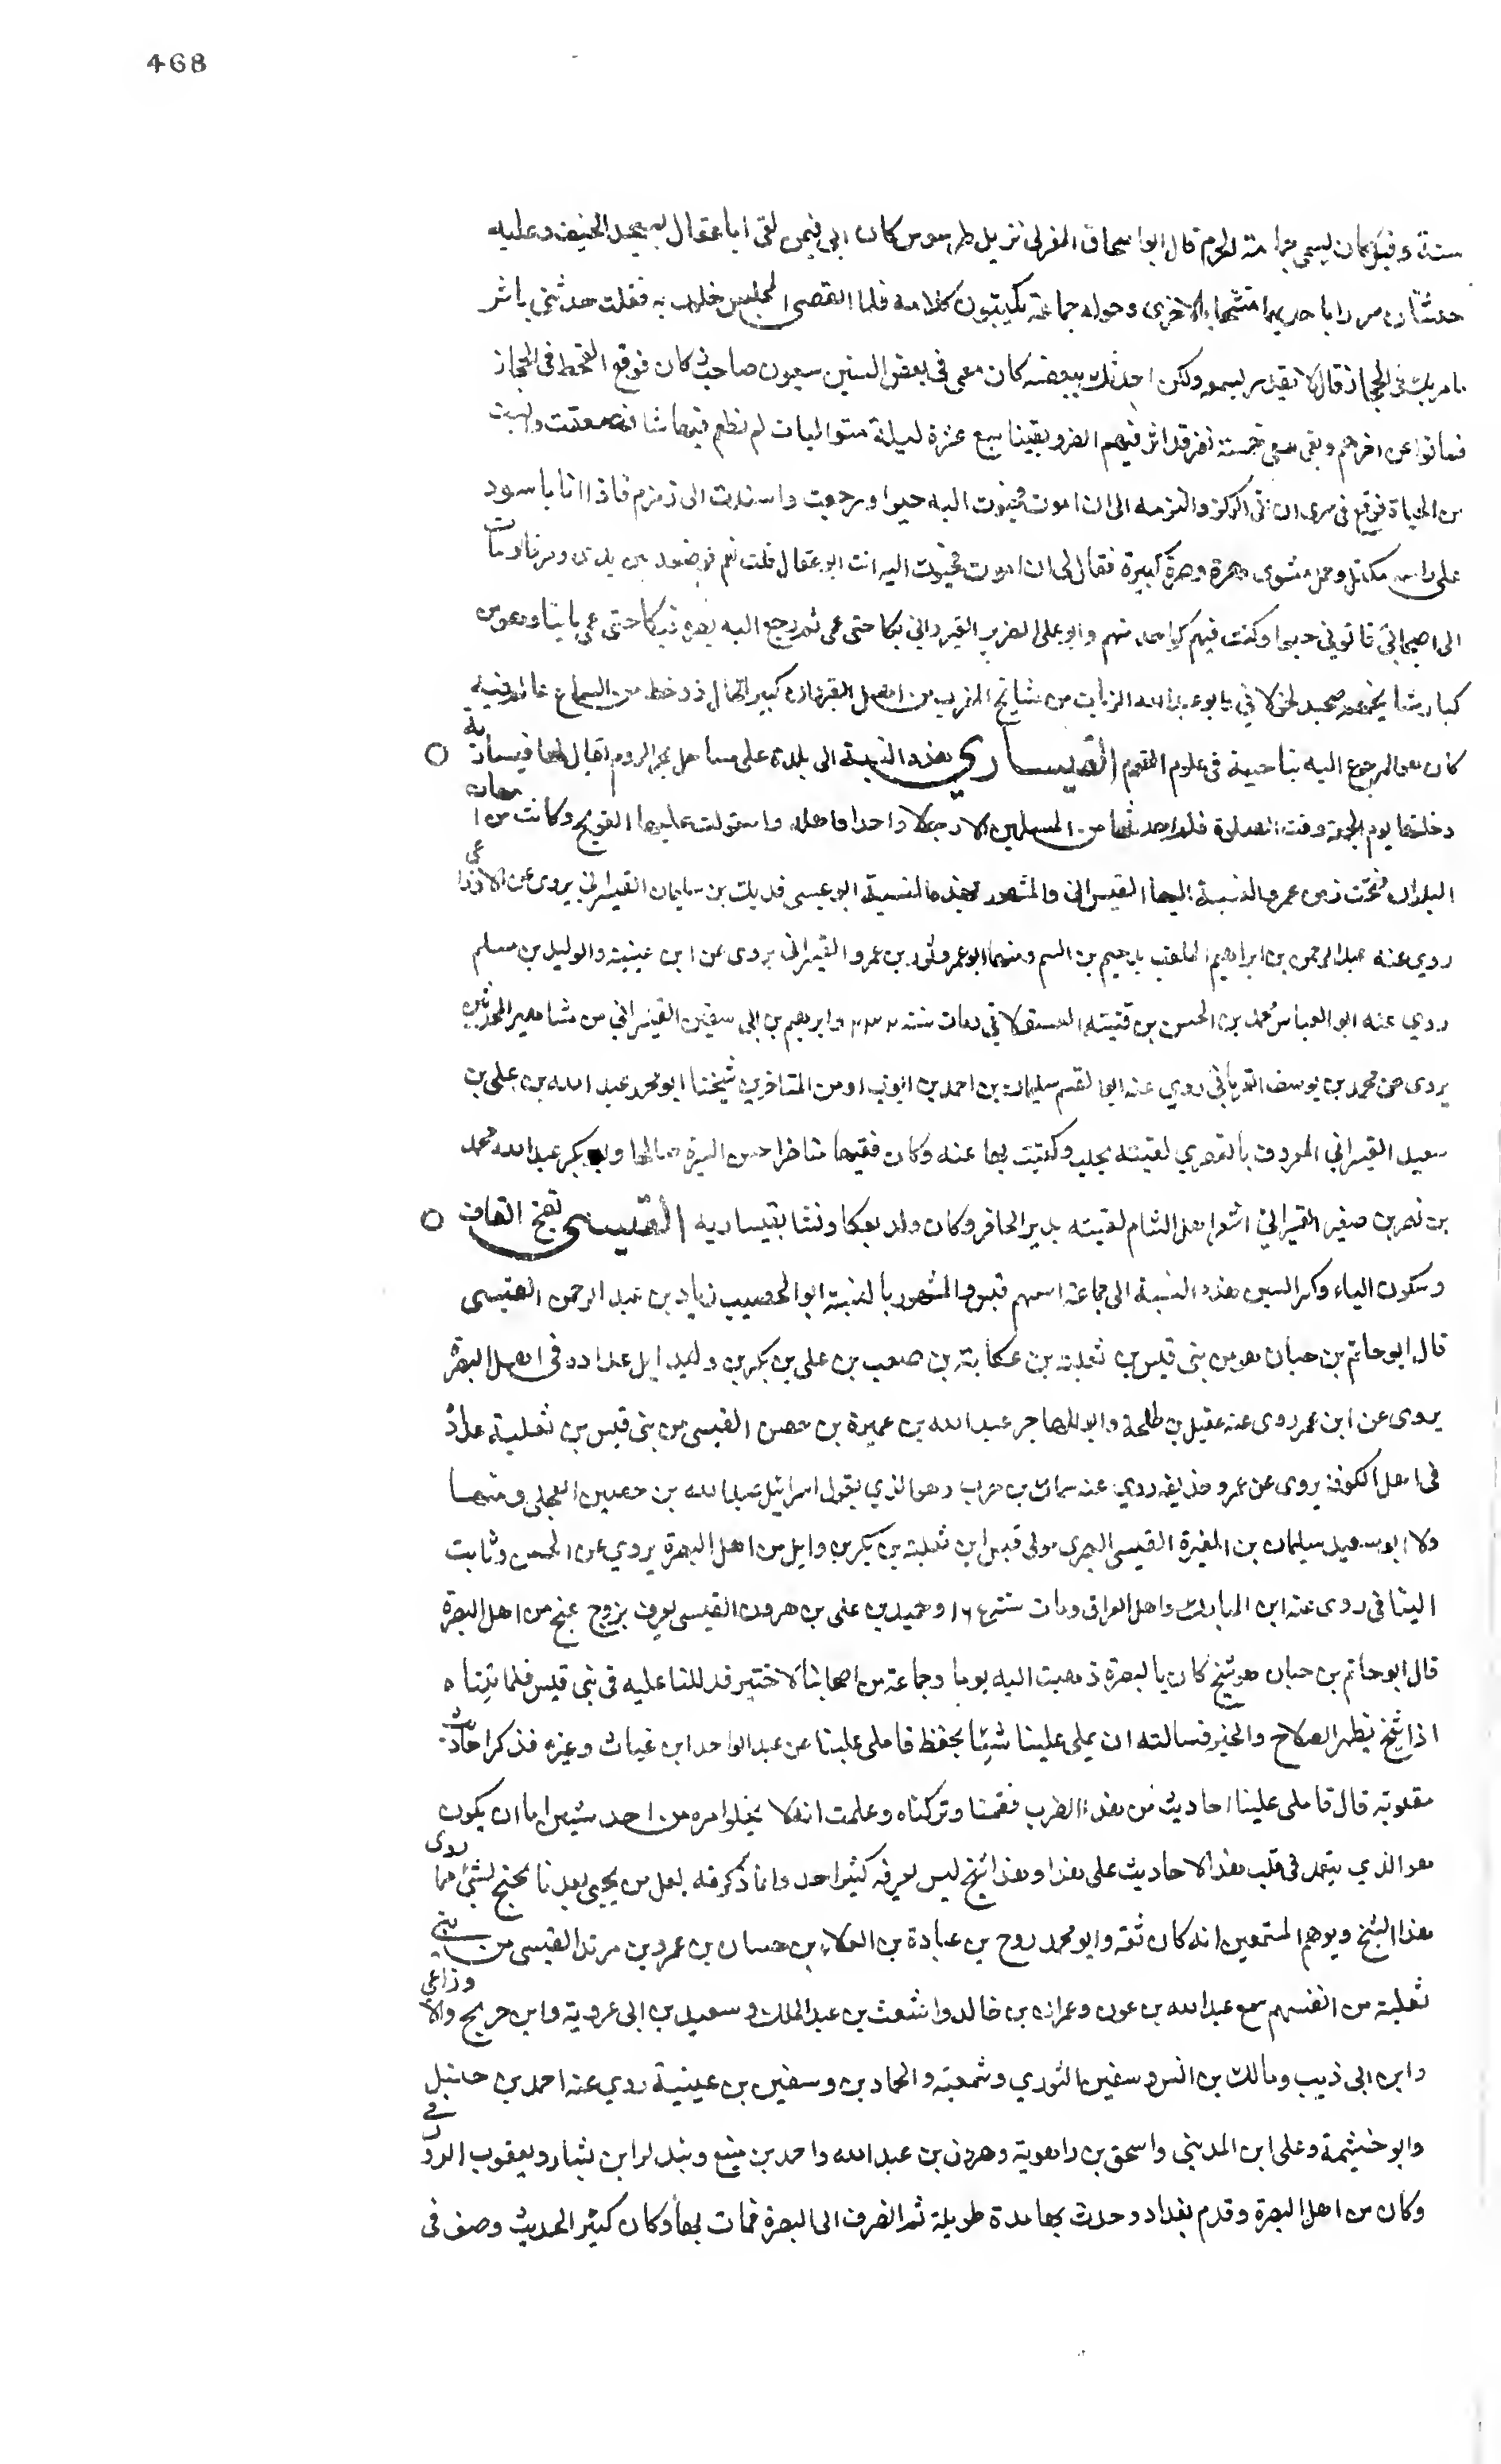 468
سنة وقيل كان يسمى حمامة الحرم قال ابو اسحاق المغربى نزيل طرسوس كان ابى فيمن لقى ابا عقال
جماعة يكتبون كلامه فلما انقضى المجلس خلوت به فقلت حدثنى
فى الحجاز قال ولكن احدثك ببعضه كان معى فى بعض السنين سبعون صاحب ركوة فوقع القحط فى الحجاز
فماتوا عن اخرهم وبقى معى خمسة نفر قد اثر فيهم الضر وبقينا سبع عشرة ليلة متواليات لم نطعم فيها شيا
من الحياة فوقع فى سرى ان اتى الركن والتزمه الى ان اموت فحبوت اليه حبوا ورجعت واستندت الى زمزم فاذا انا باسود
على راسه مكتل وحمل مشوى وصرة كبيرة فقال لى انت ابو عقال قلت نعم فوضعه بين يدى
الى اصحابى فاتونى حبوا وكنت فيهم كاحدهم وابو على الضرير القيروانى بكا حتى عمى ثم رجع اليه بصره فبكا حتى عمى ثانيا وهو من
كبار مشايخهم صحب وابو عبد الله الزيات من مشايخ المغرب من اهل القيروان كبير الحال ذو حظ من السماع
كان هو المرجوع اليه بناحيته فى علوم القوم القيسارى هذه النسبة الى بلدة على ساحل بحر الروم يقال لها قيسارية
دخلتها يوم الجمعة وقت الصلوة فلم اجد بها من المسلمين الا رجلا واحدا واهله واستولت عليها الفرنج وكانت من امهات
البلدان فتحت زمن عمر والنسبة اليها القيسرانى والمشهور بهذه النسبة ابو عيسى فديك بن سليمان القيسرانى يروى عن الاوزاعى
روى عنه عبد الرحمن بن ابراهيم الملقب بدحيم بن اليتيم ومنها ابو عمرو ثور بن عمرو القيسرانى يروى عن ابن عيينة والوليد بن مسلم
روى عنه ابو العباس محمد بن الحسن بن قتيبة العسقلانى ومات سنة وابرهيم بن ابى سفين القيسرانى من مشاهير المحدثين
يروى عن محمد بن يوسف الفريابى روى عنه ابو القسم سليمان بن احمد بن ايوب ومن المتاخرين شيخنا ابو محمد عبد الله بن على بن
سعيد القيسرانى المعروف بالقصرى لقيته بحلب وكتبت بها عنه وكان فقيها مناظرا حسن السيرة صالحا وابو بكر عبد الله محمد
بن نصر بن صغير القيسرانى اشعر اهل الشام لقيته بدير الحافر وكان ولد بعكا ونشا بقيسارية القيسى بفتح القاف
وسكون الياء وكسر السين هذه النسبة الى جماعة اسمهم قيس والمشهور بالنسبة ابو الخصيب زياد بن عبد الرحمن القيسى
قال ابو حاتم بن حبان هو من بنى قيس بن ثعلبة بن عكابة بن صعب بن على بن بكر بن وايل عداده فى اهل البصرة
يروى عن ابن عمر روى عنه عقيل بن طلحة وابو المهاجر عبد الله بن عميرة بن حصن القيسى من بنى قيس بن ثعلبة عداده
فى اهل الكوفة يروى عن عمر وحذيفة روى عنه سماك بن حرب وهو الذى يقول اسرائيل عبد الله بن حصين العجلى ومنها
ولا ابو سعيد سليمان بن المغيرة القيسى البصرى مولى قيس ابن ثعلبة بن بكر بن وايل من اهل البصرة يروى عن الحسن وثابت
البنانى روى عنه ابن المبارك واهل العراق ومات سنة وحميد بن على بن هرون القيسى يعرف بزوج غنج من اهل البصرة
قال ابو حاتم بن حبان هو شيخ كان بالبصرة ذهبت اليه يوما وجماعة من اصحابنا لاختبر فدللنا عليه فى بنى قيس فلما اتيناه
اذا شيخ يظهر الصلاح والخير فسالته ان يملى علينا شيئا بحفظ فاملى علينا عن عبد الواحد ابن غياث وغيره فذكر احاديث
مقلوبة قال فاملى علينا احاديث من هذا الضرب فقمنا وتركناه وعلمت انه لا يخلوا امره من احد شيئين اما ان يكون
هو الذى يتعمد فى قلب هذه الاحاديث على هذا وهذا شيخ ليس يعرفه كثير احد وانما ذكرته لعل من يجيى بعدنا يحتج بشئ مما روى
هذا الشيخ ويوهم المستمعين انه كان ثقة وابو محمد روح بن عبادة بن العلاء بن حسان بن عمرو بن مرثد القيسى من بنى
ثعلبة من انفسهم سمع عبد الله بن عون وعمران بن خالد واشعث بن عبد الملك وسعيد بن ابى عروبة وابن جريج والاوزاعى
وابن ابى ذيب ومالك بن انس وسفين الثورى وشعبة والحمادين وسفين بن عيينة روى عنه احمد بن حنبل
وابو خيثمة وعلى ابن المدينى واسحق بن راهوية وهرون بن عبد الله واحمد بن منيع وبندار ابن بشار ويعقوب الدورقى
وكان من اهل البصرة وقدم بغداد وحدث بها مدة طويلة ثم انصرف الى البصرة فمات بها وكان كثير الحديث وصنف فى